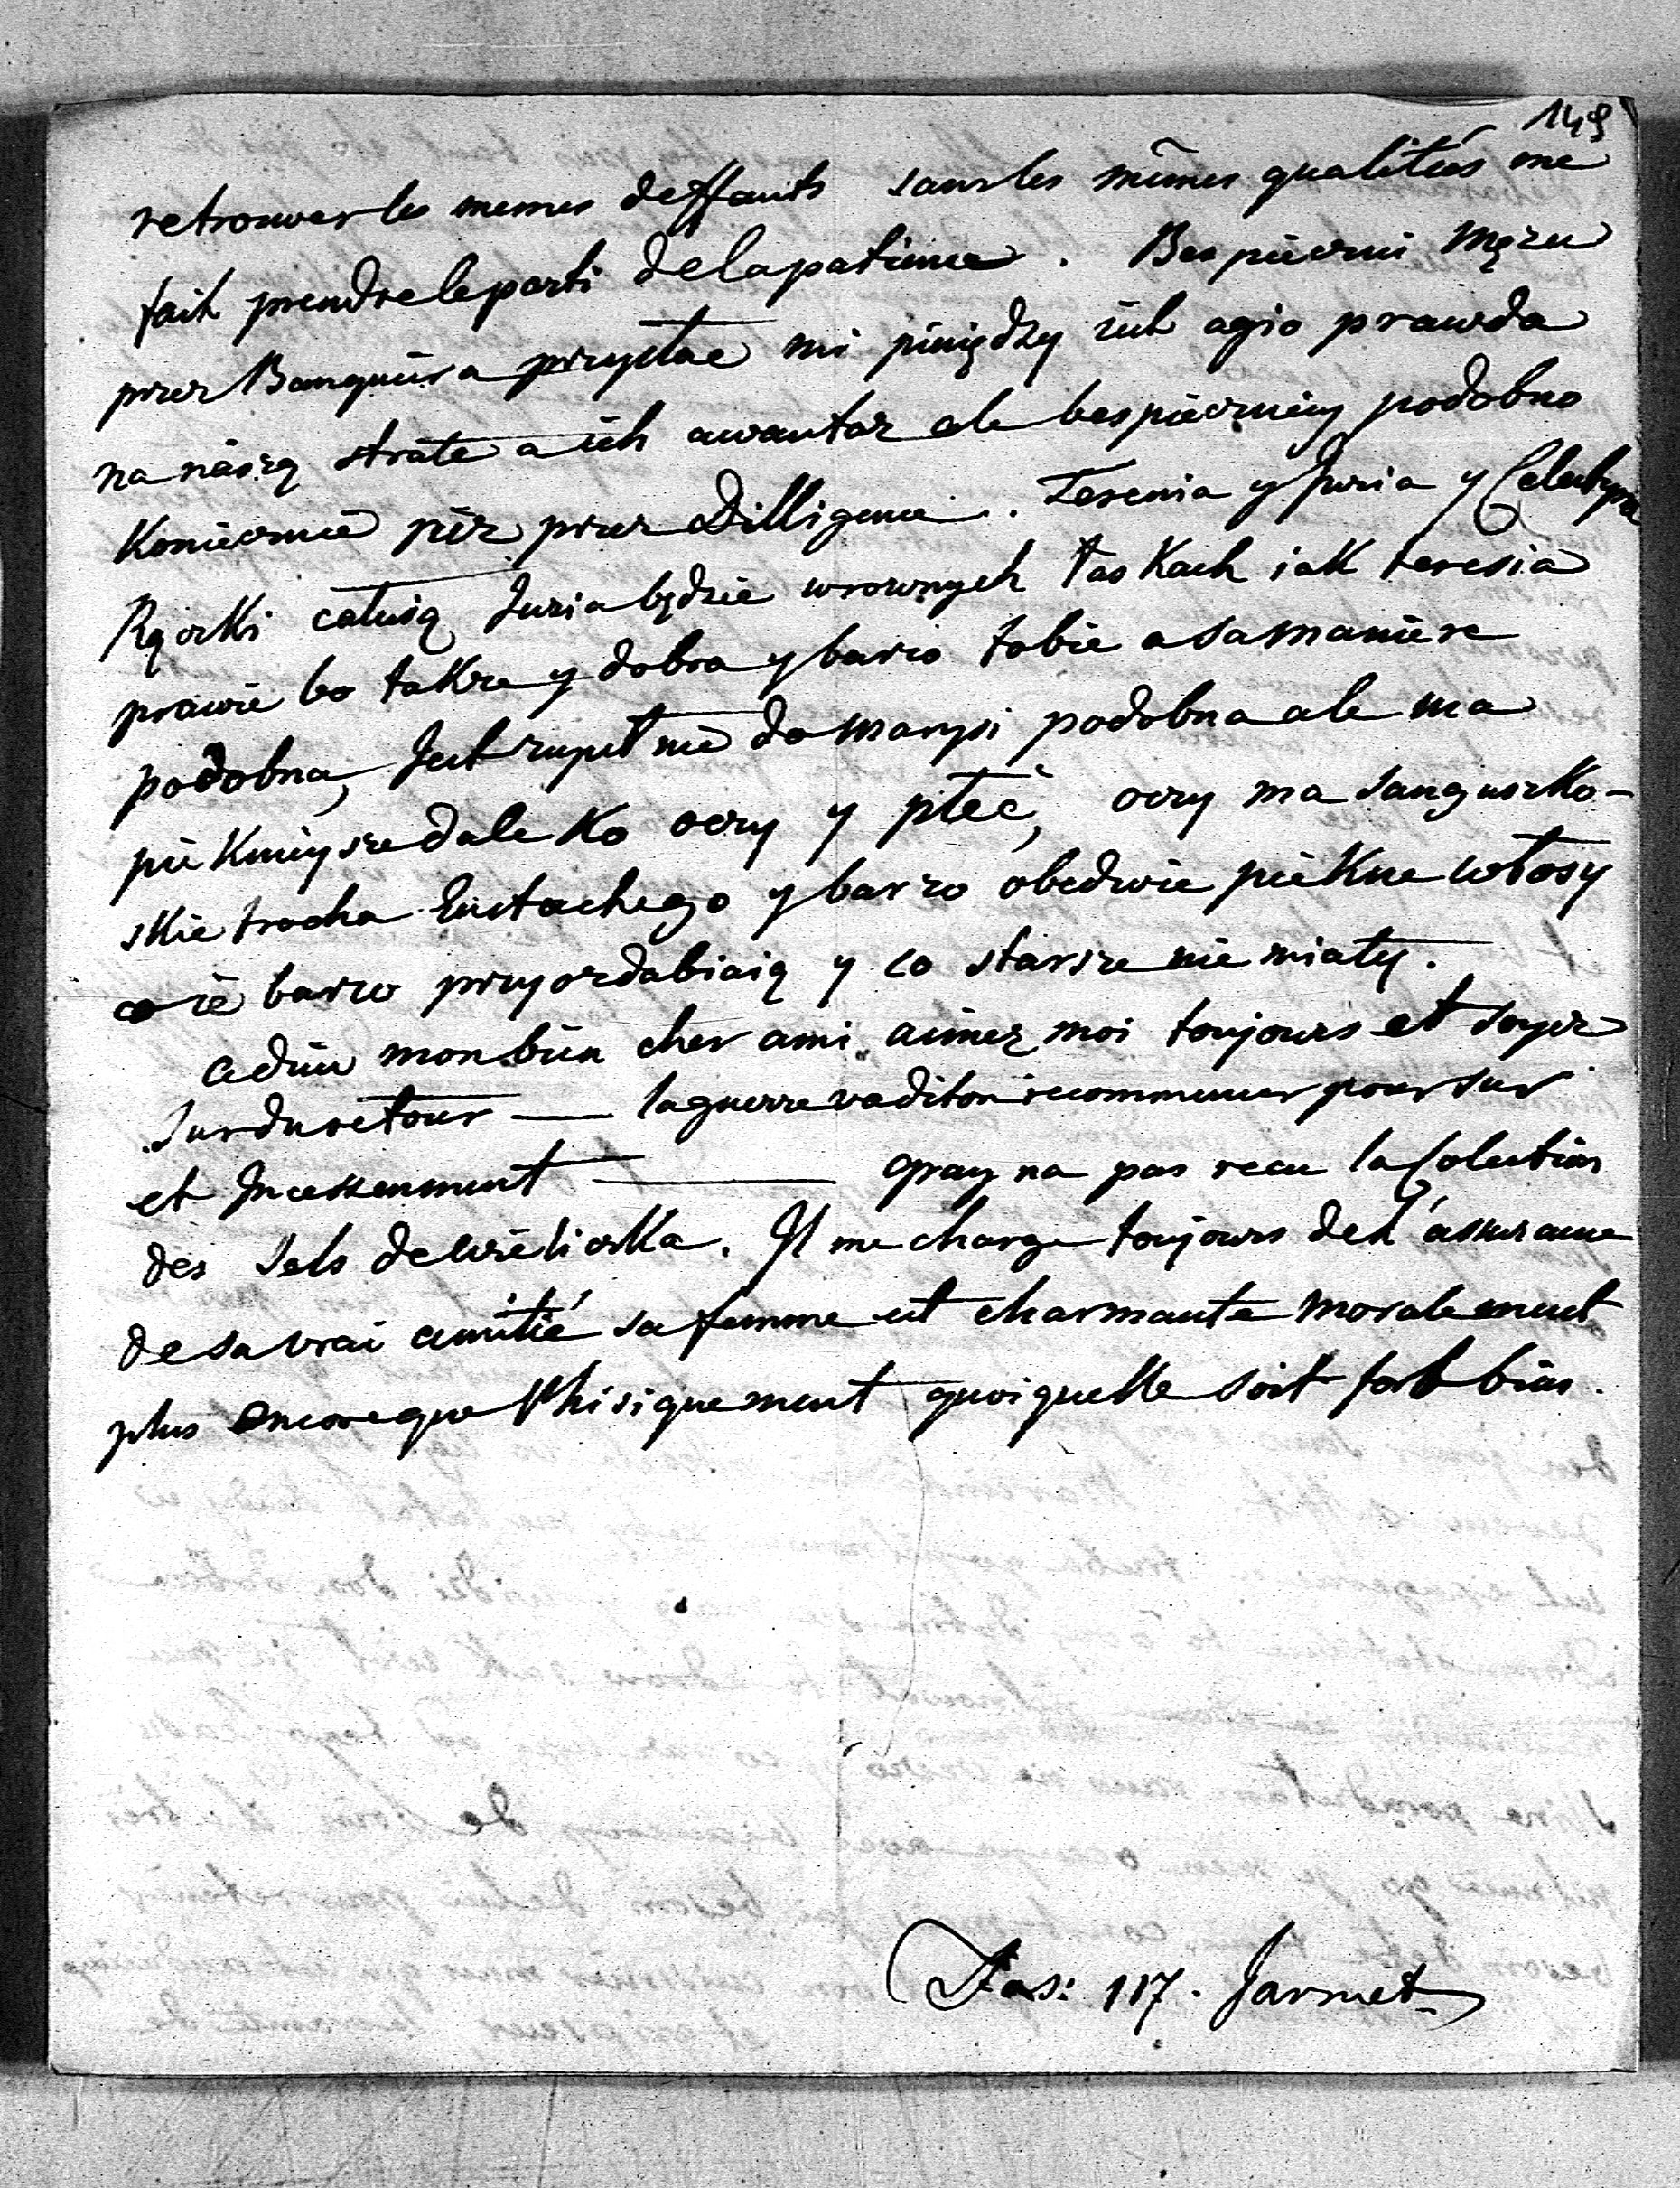 149
retrouver les memes deffauts sans les mêmes qualitées me
fait prendre le parti de la patience. Bespiecrni Męzu
przez Banquiera przysłac mi piniędzy iich agio prawda
na nászą strate a iich awantaz ale bespiecrniey podobno
Koniecznie niz przez Dilligence. Teresnia y Juzia y Celestyna
Rączki całuią Juzia będzie wrownych łaskach iak teresia
prawie bo takze y dobra y barzo tobie a sa maniere
podobna, Jest zupełnie do marysi podobna ale ma
piekniysze daleko oczy y płeć, oczy ma sanguszko-
skie trocha Eustachego y barzo obedwie piekne włosy
co ie barzo przyozdabiaią y co starsze nie miały.
adieu mon bien cher ami aimez moi toujours et soyez
Sur du retour — la guerre va diton recommencer pour sur
et Incessenment — gray na pas recu la Colection
des Sels de wieliczka. Il me charge toujours de l'assurance
de sa vrai amitié sa femme est charmante moralement
plus encore que Phisiquement quoiquelle soit fort bien.
Fas: 117. Jarmet